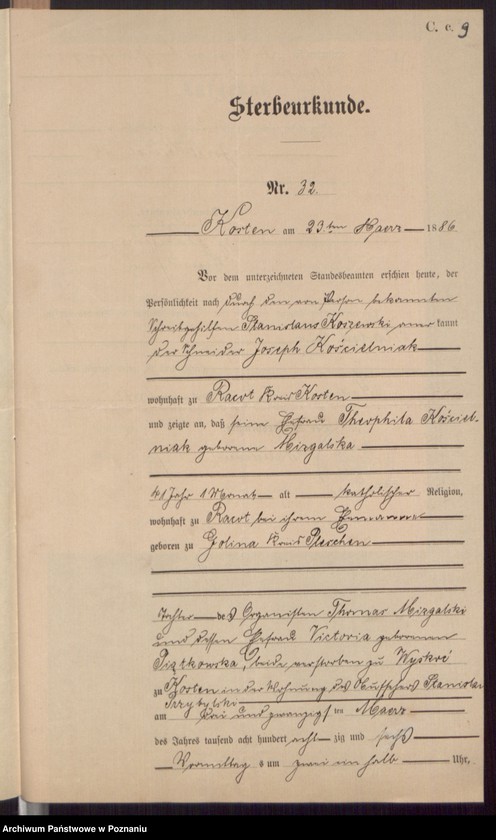 C. c. 9
Sterbeurkunde.
Nr. 32.
Kosten am 23ten Maerz 1886.
Vor dem unterzeichneten Standesbeamten erschien heute, der
Persönlichkeit nach durch den von Person bekannten
Schreibgehilfen Stanislaus Koszewski anerkannt
der Schneider Joseph Kościelniak
wohnhaft zu Racot Kreis Kosten
und zeigte an, daß seine Ehefrau Theophila Kościel-
niak geborene Mizgalska
41 Jahr 1 Monat alt katholischer Religion,
wohnhaft zu Racot bei ihrem Ehemanne
geboren zu Golina Kreis Pleschen
Tochter des Organisten Thomas Mizgalski
und dessen Ehefrau Victoria geborenen
Piątkowska, beide verstorben zu Wyskoć
zu Kosten in der Wohnung des Stanislaus
Przybylski
am drei und zwanzigsten Maerz
des Jahres tausend acht hundert achtzig und sechs
Vormittags um zwei ein halb Uhr,
Archiwum Państwowe w Poznaniu